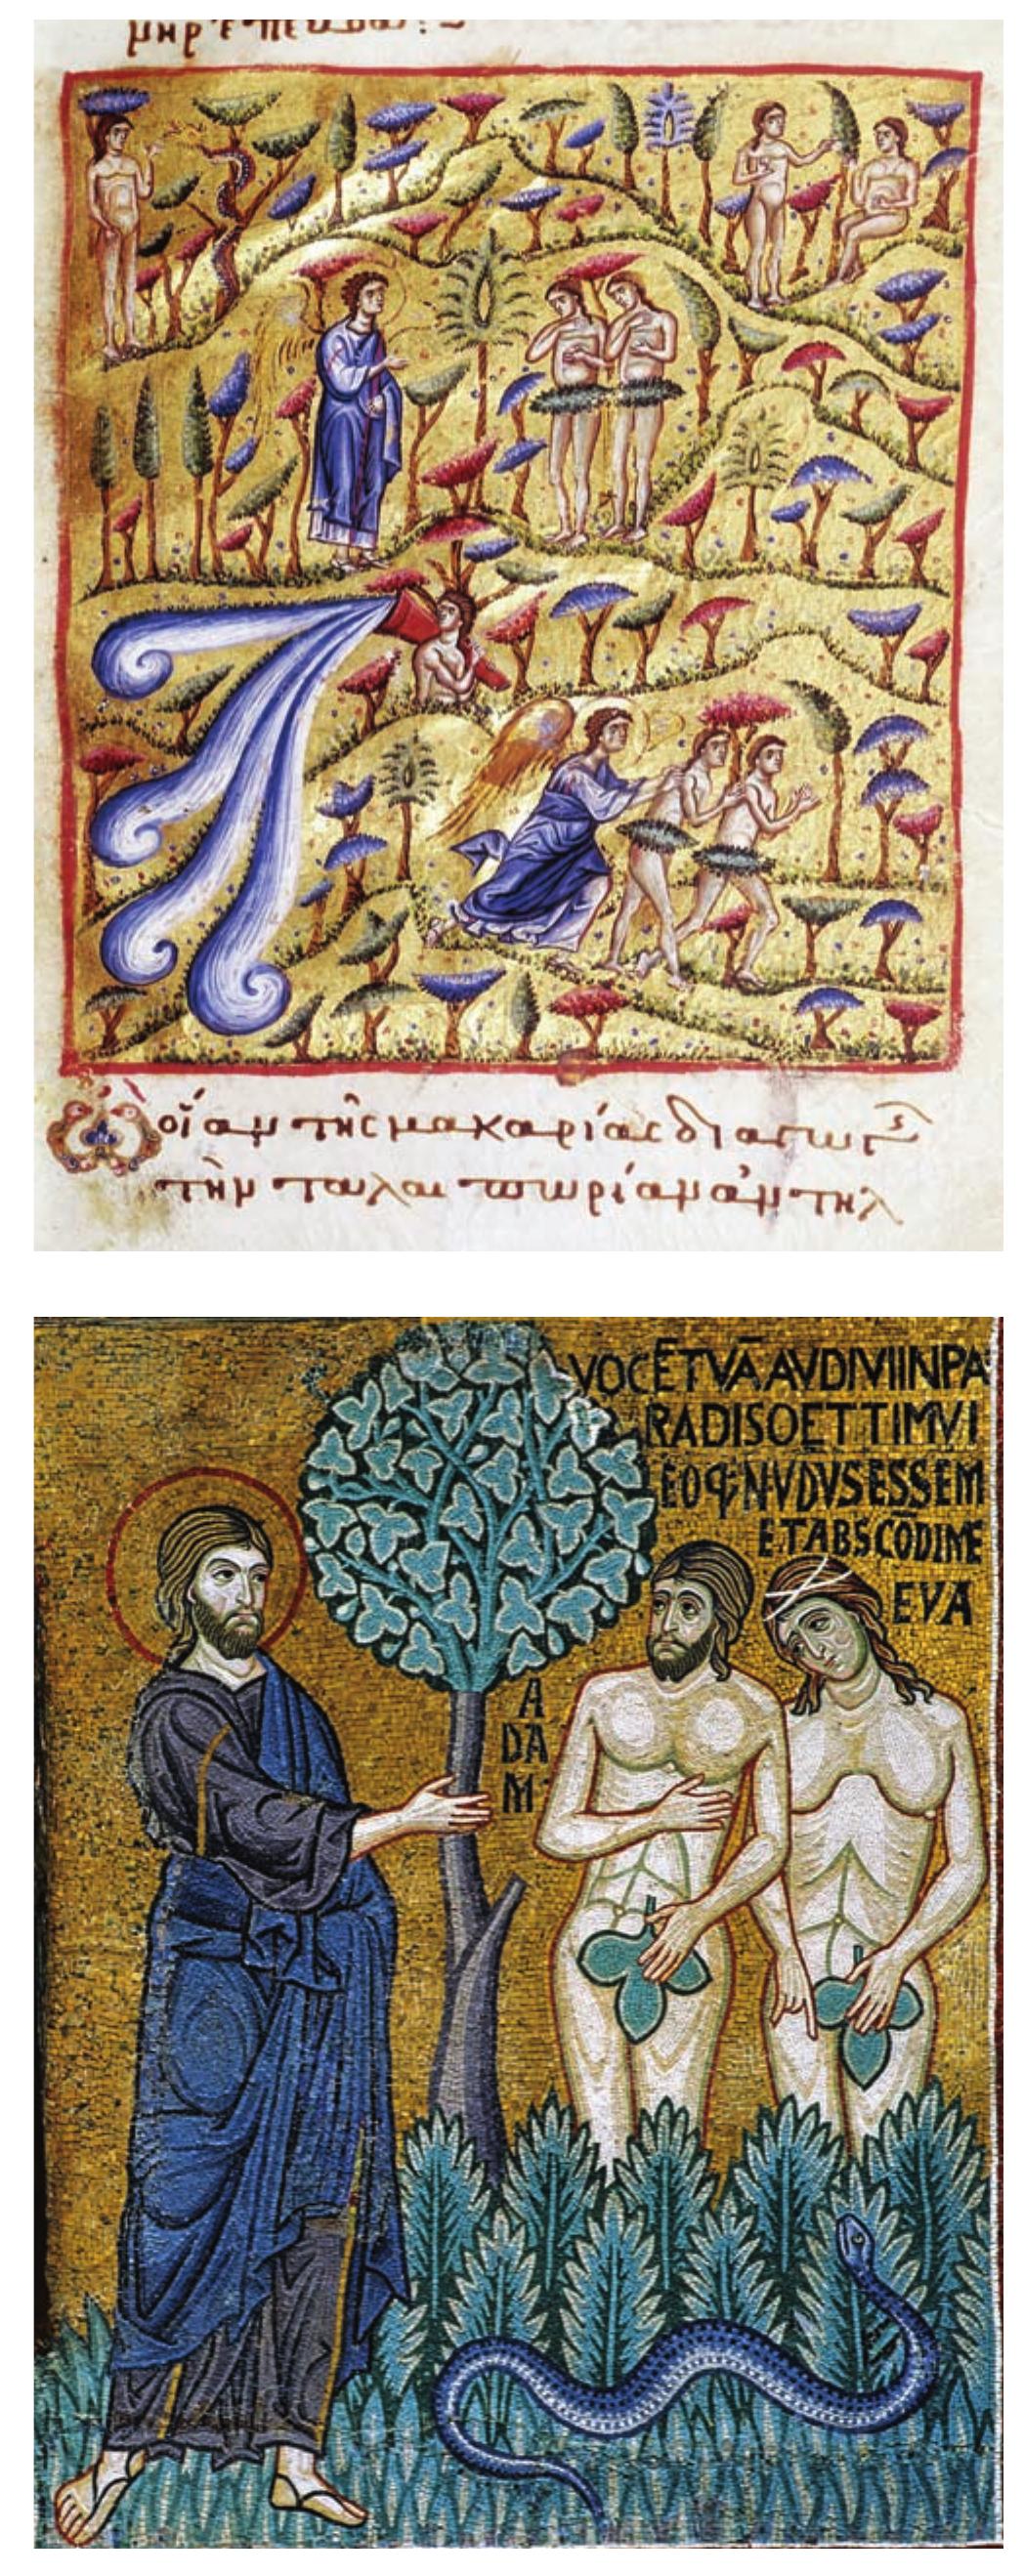 οἵαν τῆς μακαρίας διαγωγῆς
τὴν ταλαιπωρίαν ἀντηλ
VOCĒ TVĀ AVDIVI IN PA
RADISO ET TIMVI
EO Q NVDVS ESSEM
ET ABSCŌDI ME
EVA
A
DA
M